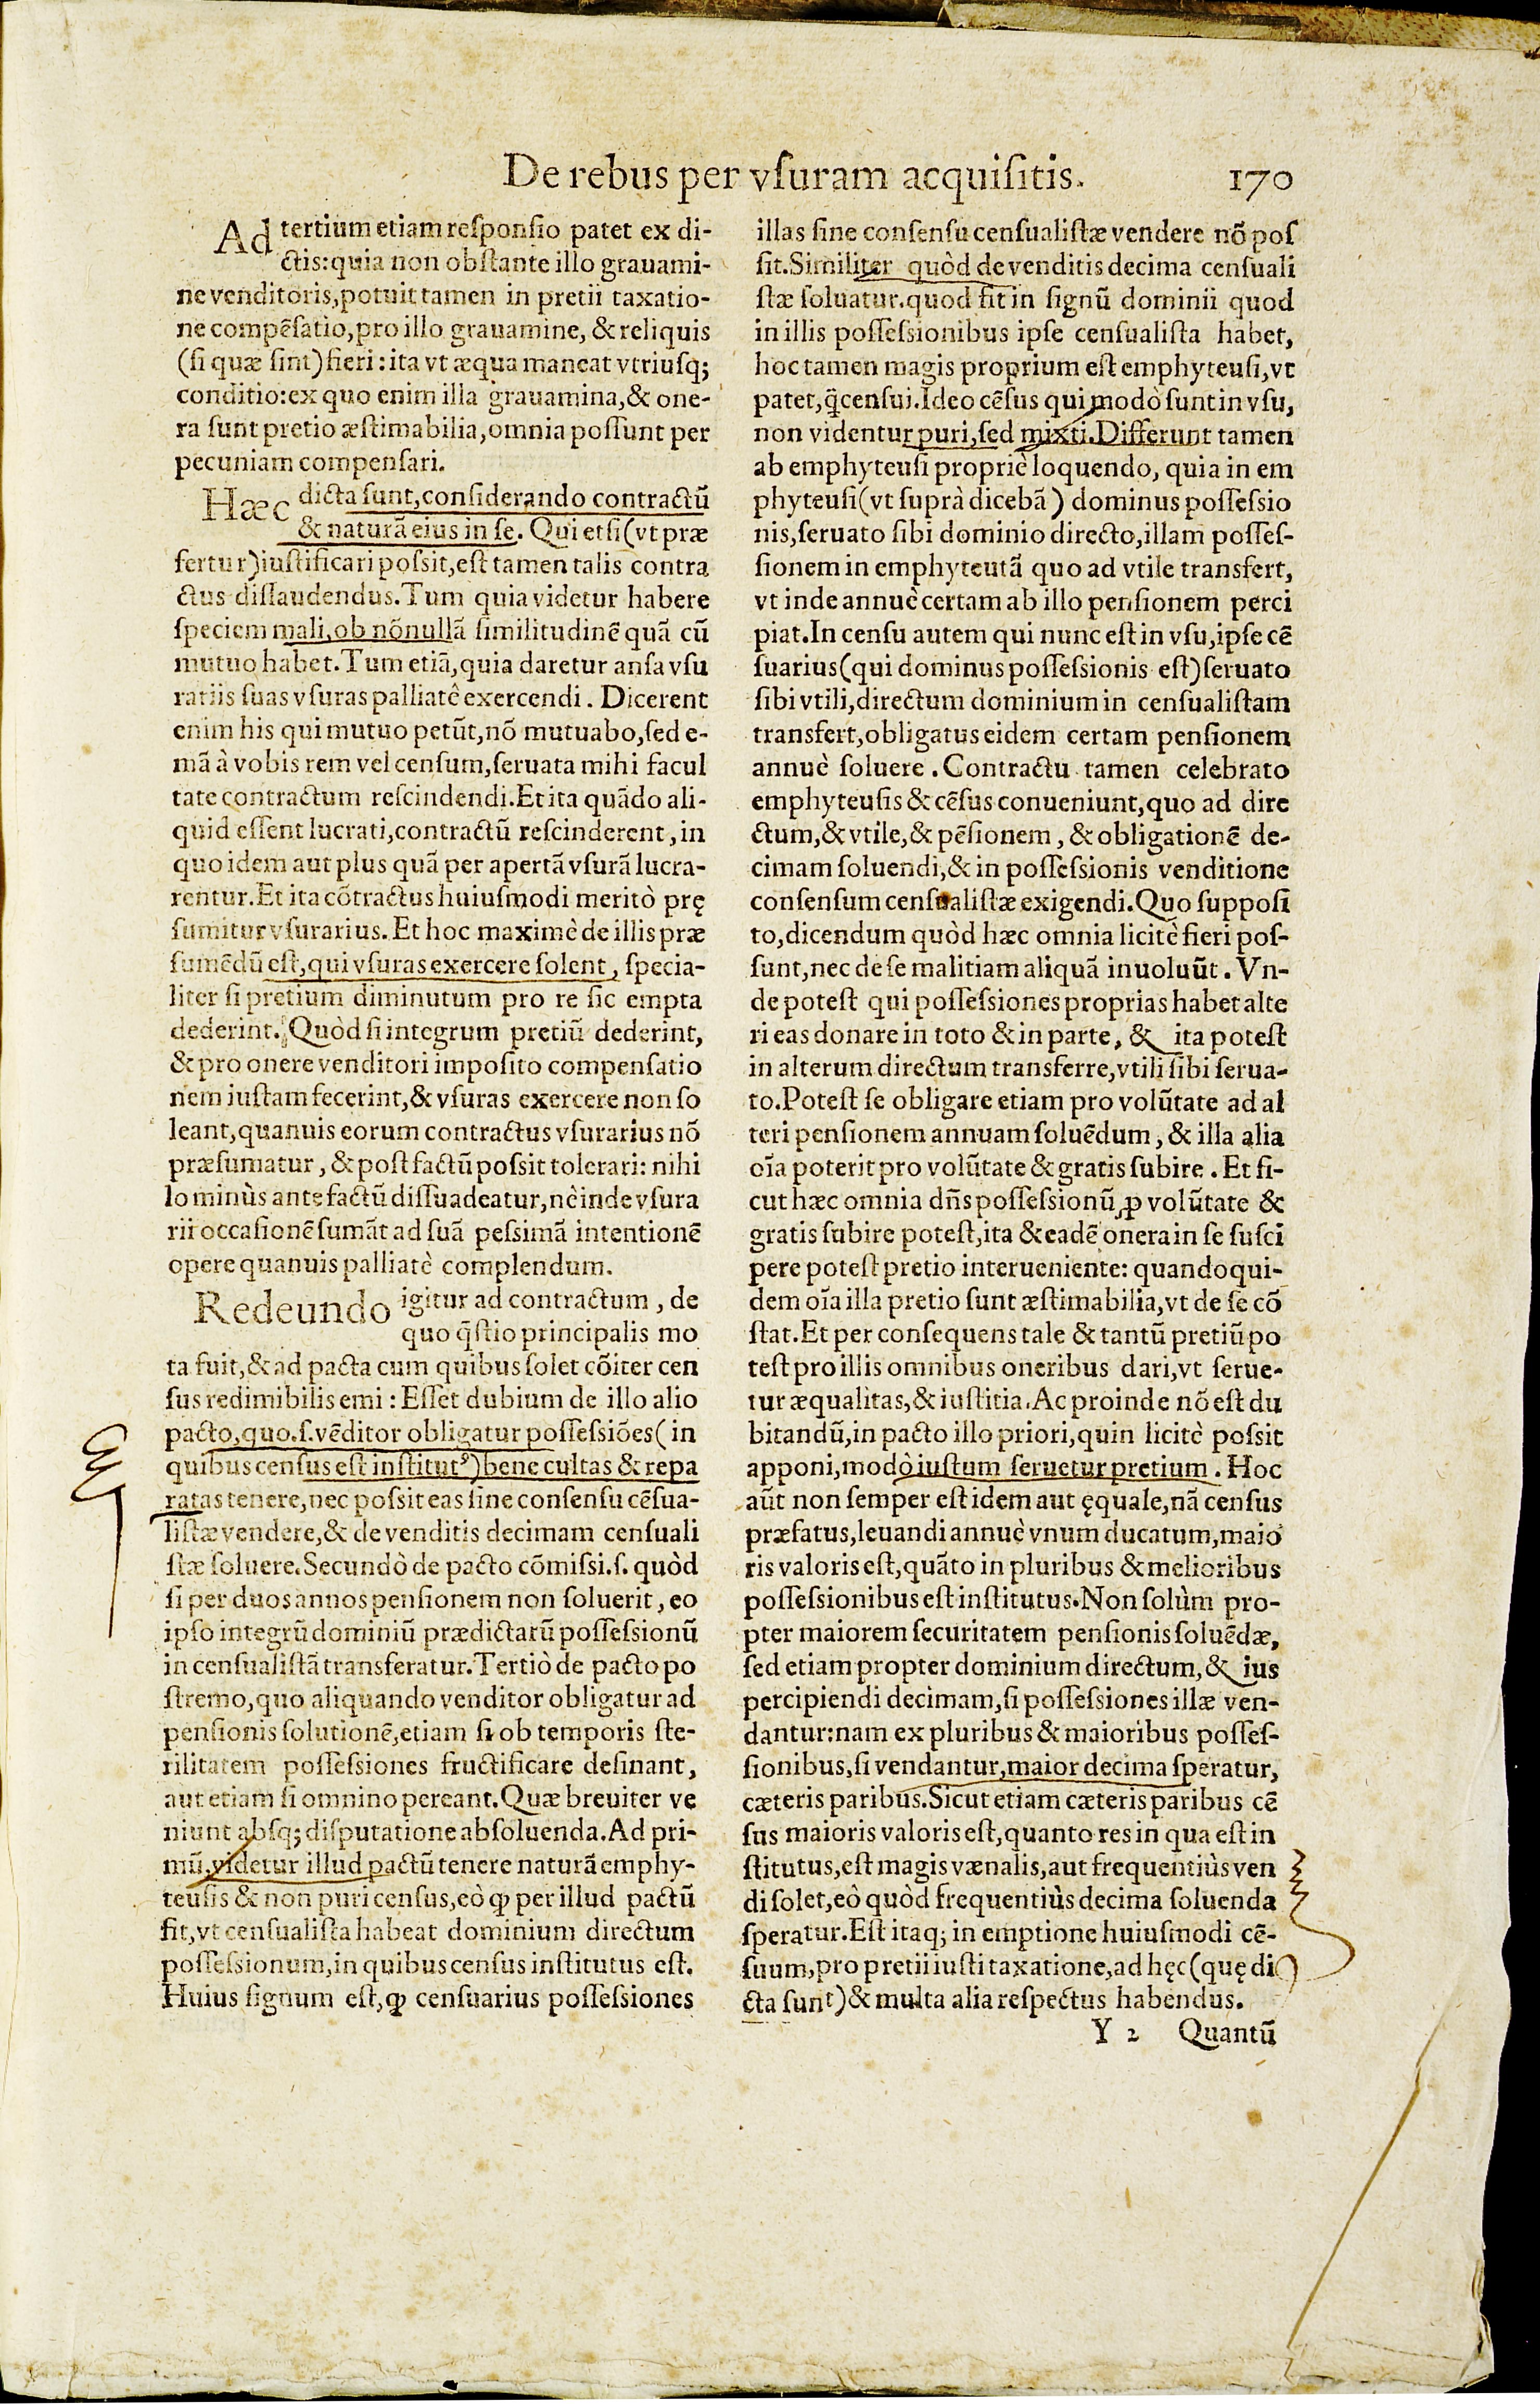 De rebus per vſuram acquiſitis. 170
Ad tertium etiam reſponſio patet ex di-
ctis: quia non obſtante illo grauami-
ne venditoris, potuit tamen in pretii taxatio-
ne compẽſatio, pro illo grauamine, & reliquis
(ſi quæ ſint) fieri: ita vt æqua maneat vtriuſq;
conditio: ex quo enim illa grauamina, & one-
ra ſunt pretio æſtimabilia, omnia poſſunt per
pecuniam compenſari.
Hæc dicta ſunt, conſiderando contractũ
& naturã eius in ſe. Qui etſi (vt præ
fertur) iuſtificari poſsit, eſt tamen talis contra
ctus diſlaudendus. Tum quia videtur habere
ſpeciem mali, ob nõnullã ſimilitudinẽ quã cũ
mutuo habet. Tum etiã, quia daretur anſa vſu
rariis ſuas vſuras palliatê exercendi. Dicerent
enim his qui mutuo petũt, nõ mutuabo, ſed e-
mã à vobis rem vel cenſum, ſeruata mihi facul
tate contractum reſcindendi. Et ita quãdo ali-
quid eſſent lucrati, contractũ reſcinderent, in
quo idem aut plus quã per apertã vſurã lucra-
rentur. Et ita cõtractus huiuſmodi meritò prę
ſumitur vſurarius. Et hoc maximè de illis præ
ſumẽdũ eſt, qui vſuras exercere ſolent, ſpecia-
liter ſi pretium diminutum pro re ſic empta
dederint. Quòd ſi integrum pretiũ dederint,
& pro onere venditori impoſito compenſatio
nem iuſtam fecerint, & vſuras exercere non ſo
leant, quanuis eorum contractus vſurarius nõ
præſumatur, & poſt factũ poſsit tolerari: nihi
lo minùs ante factũ diſſuadeatur, nè inde vſura
rii occaſionẽ ſumãt ad ſuã peſsimã intentionẽ
opere quanuis palliatè complendum.
Redeundo igitur ad contractum, de
quo q̃ſtio principalis mo
ta fuit, & ad pacta cum quibus ſolet cõiter cen
ſus redimibilis emi: Eſſet dubium de illo alio
pacto, quo. ſ. vẽditor obligatur poſſeſsiões (in
quibus cenſus eſt inſtitutꝰ) bene cultas & repa
ratas tenere, nec poſsit eas ſine conſenſu cẽſua-
liſtæ vendere, & de venditis decimam cenſuali
ſtæ ſoluere. Secundò de pacto cõmiſsi. ſ. quòd
ſi per duos annos penſionem non ſoluerit, eo
ipſo integrũ dominiũ prædictarũ poſſeſsionũ
in cenſualiſtã transferatur. Tertiò de pacto po
ſtremo, quo aliquando venditor obligatur ad
penſionis ſolutionẽ, etiam ſi ob temporis ſte-
rilitatem poſſeſsiones fructificare deſinant,
aut etiam ſi omnino pereant. Quæ breuiter ve
niunt abſq; diſputatione abſoluenda. Ad pri-
mũ, videtur illud pactũ tenere naturã emphy-
teuſis & non puri cenſus, eò ꝙ per illud pactũ
fit, vt cenſualiſta habeat dominium directum
poſſeſsionum, in quibus cenſus inſtitutus eſt.
Huius ſignum eſt, ꝙ cenſuarius poſſeſsiones
illas ſine conſenſu cenſualiſtæ vendere nõ poſ
ſit. Similiter quòd de venditis decima cenſuali
ſtæ ſoluatur. quod fit in ſignũ dominii quod
in illis poſſeſsionibus ipſe cenſualiſta habet,
hoc tamen magis proprium eſt emphyteuſi, vt
patet, q̃ cenſui. Ideo cẽſus qui modò ſunt in vſu,
non videntur puri, ſed mixti. Differunt tamen
ab emphyteuſi propriè loquendo, quia in em
phyteuſi (vt ſuprà dicebã) dominus poſſeſsio
nis, ſeruato ſibi dominio directo, illam poſſeſ-
ſionem in emphyteutã quo ad vtile transfert,
vt inde annuè certam ab illo penſionem perci
piat. In cenſu autem qui nunc eſt in vſu, ipſe cẽ
ſuarius (qui dominus poſſeſsionis eſt) ſeruato
ſibi vtili, directum dominium in cenſualiſtam
transfert, obligatus eidem certam penſionem
annuè ſoluere. Contractu tamen celebrato
emphyteuſis & cẽſus conueniunt, quo ad dire
ctum, & vtile, & pẽſionem, & obligationẽ de-
cimam ſoluendi, & in poſſeſsionis venditione
conſenſum cenſualiſtæ exigendi. Quo ſuppoſi
to, dicendum quòd hæc omnia licitè fieri poſ-
ſunt, nec de ſe malitiam aliquã inuoluũt. Vn-
de poteſt qui poſſeſsiones proprias habet alte
ri eas donare in toto & in parte, & ita poteſt
in alterum directum transferre, vtili ſibi ſerua-
to. Poteſt ſe obligare etiam pro volũtate ad al
teri penſionem annuam ſoluẽdum, & illa alia
oĩa poterit pro volũtate & gratis ſubire. Et ſi-
cut hæc omnia dñs poſſeſsionũ ꝓ volũtate &
gratis ſubire poteſt, ita & eadẽ onera in ſe ſuſci
pere poteſt pretio interueniente: quandoqui-
dem oĩa illa pretio ſunt æſtimabilia, vt de ſe cõ
ſtat. Et per conſequens tale & tantũ pretiũ po
teſt pro illis omnibus oneribus dari, vt ſerue-
tur æqualitas, & iuſtitia. Ac proinde nõ eſt du
bitandũ, in pacto illo priori, quin licitè poſsit
apponi, modò iuſtum ſeruetur pretium. Hoc
aũt non ſemper eſt idem aut ęquale, nã cenſus
præfatus, leuandi annuè vnum ducatum, maio
ris valoris eſt, quãto in pluribus & melioribus
poſſeſsionibus eſt inſtitutus. Non ſolùm pro-
pter maiorem ſecuritatem penſionis ſoluẽdæ,
ſed etiam propter dominium directum, & ius
percipiendi decimam, ſi poſſeſsiones illæ ven-
dantur: nam ex pluribus & maioribus poſſeſ-
ſionibus, ſi vendantur, maior decima ſperatur,
cæteris paribus. Sicut etiam cæteris paribus cẽ
ſus maioris valoris eſt, quanto res in qua eſt in
ſtitutus, eſt magis vænalis, aut frequentiùs ven
di ſolet, eò quòd frequentiùs decima ſoluenda
ſperatur. Eſt itaq; in emptione huiuſmodi cẽ-
ſuum, pro pretii iuſti taxatione, ad hęc (quę di
cta ſunt) & multa alia reſpectus habendus.
Y 2 Quantũ